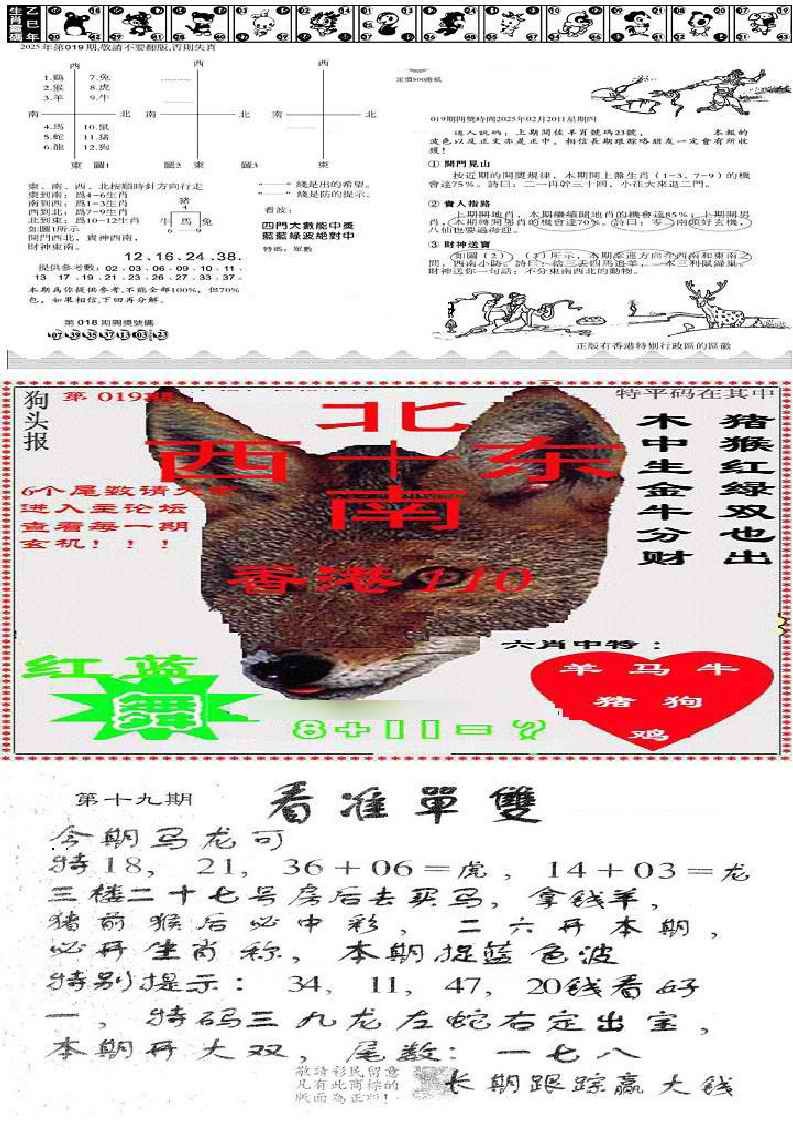 生肖靈碼
乙巳年
2025年第019期,敬請不要翻版,否則失肖
西
西
西
1.鷄 7.兔
2.猴 8.虎
3.羊 9.牛
南 北 南 北 南 北
4.馬 10.鼠
5.蛇 11.猪
6.龍 12.狗
東 圖1 圖2 東 圖3 東
東、南、西、北按順時針方向行走
東到南：爲4-6生肖
南到西：爲1=3生肖
西到北：爲7-9生肖
北到東：爲10-12生肖
如圖1所示
開門西北，貴神西南，
財神東南。
猪
4
牛 馬 兔
6 9
綫是出的希望。
綫是防的提示。
看波：
四門大數能中獎
藍藍綠波絕對中
特碼：單數
12.16.24.38.
提供參考數：02·03·05·09·10·11·
13·17·19·21·23·25·27·33·37·
本期爲你提供參考,不能全每100%，但70%
包，如果相信,下回再分解．
第018期開獎號碼
07 39 35 37 13 03 23
定價500港紙
019期開獎時間2025年02月2011星期四
道人説碼：上期開佐單肖號碼23號， 本報的
波色以及正策亦是正中，相信長期跟踪咯朋友一定會有所收
獲！
① 開門見山
按近期的開獎規律，本期開上落生肖（1-3，7-9）的機
會達75%．詩曰：二一内幹三十四，小莊大來追二門。
② 貴人指路
上期開地肖，本期繼續開地肖的機會達85%；上期開男
肖，本期轉開男肖的機會達79%，詩曰：零一兩頭好玄機，
八仙也要過海迎。
③ 財神送寶
如圖（2）、（3）所示，本期牽運方向爲西南和東南之
間，西南小勝。詩曰：拾三去四馬追羊，一本三利鼠歸巢。
財神送你一句話：不分東南西北的動物。
正版有香港特别行政區的區徽
狗头报
第 019期
特平码在其中
北
西 十 东
南
香港110
6个尾数请火速
进入主论坛
查看每一期
玄机！！！
木中生金牛分财
猪猴红绿双也出
红 蓝
8+11=?
六肖中特：
羊 马 牛
猪 狗
鸡
第十九期
看准單雙
今期马龙可
特18，21，36+06=虎，14+03=龙
三楼二十七号房后去买马，拿钱羊，
猪前猴后必中彩，二六开本期，
必开生肖称，本期捉蓝色波
特别提示：34，11，47，20钱看好
一，特码三九龙左蛇右定出宝，
本期开大双，尾数：一七八
敬請彩民留意
凡有此商標的
版面為正班！
长期跟踪赢大钱